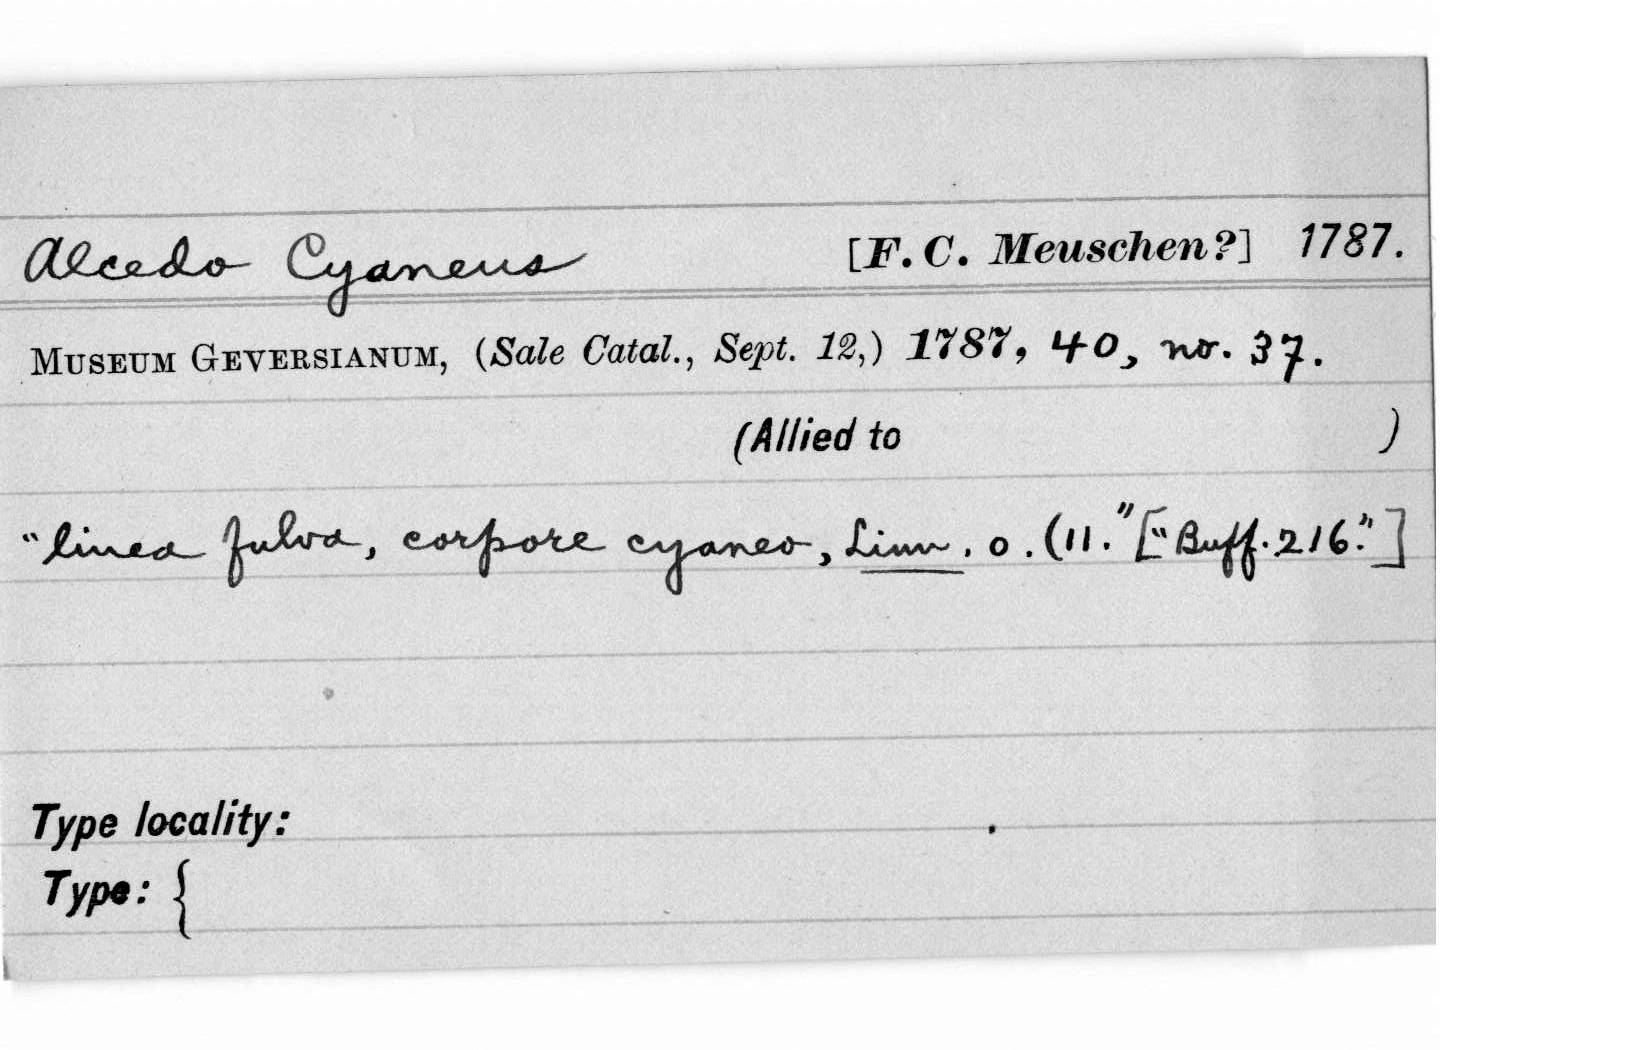 Alcedo Cyaneus [F. C. Meuschen?] 1787.
MUSEUM GEVERSIANUM, (Sale Catal., Sept. 12,) 1787, 40, no. 37.
(Allied to )
"linea fulva, corpore cyaneo, Linn. o. (11." ["Buff. 216."]
Type locality:
Type: {